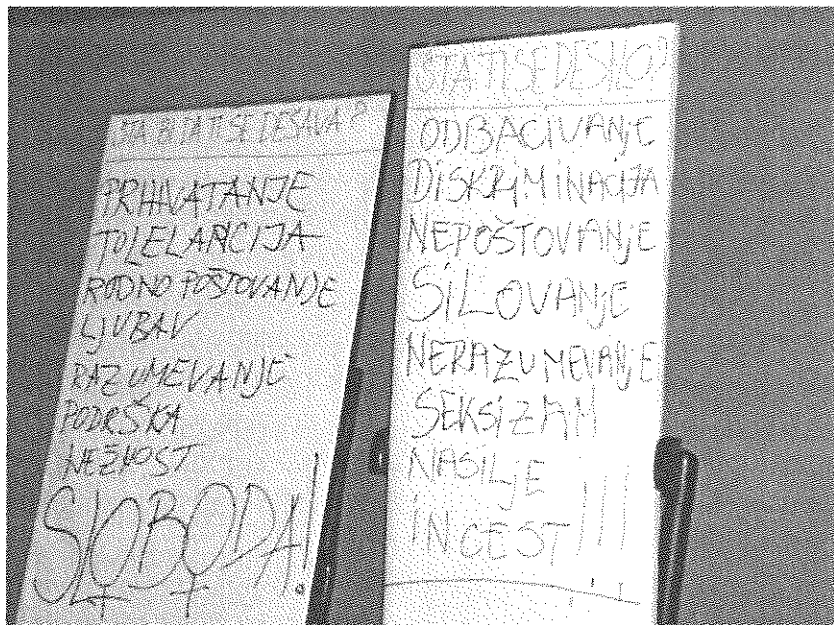 ŠTA BI DA TI SE DEŠAVA?
PRIHVATANJE
TOLELARCIJA
RODNO POŠTOVANJE
LJUBAV
RAZUMEVANJE
PODRŠKA
NEŽNOST
SLOBODA!
ŠTA TI SE DESILO?
ODBACIVANJE
DISKRIMINACIJA
NEPOŠTOVANJE
SILOVANJE
NERAZUMEVANJE
SEKSIZAM
NASILJE
INCEST!!!